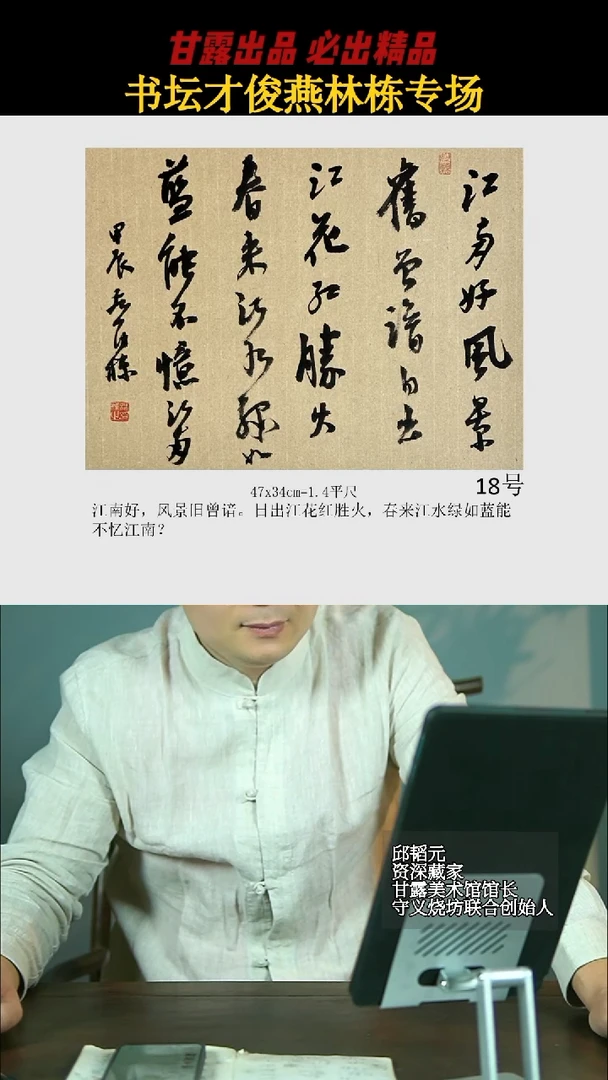 甘露出品 必出精品
书坛才俊燕林栋专场
江南好風景
舊曾諳日出
江花红勝火
春来江水绿如
藍能不憶江南
甲辰
47x34cm-1.4平尺
18号
江南好，风景旧曾谙。日出江花红胜火，春来江水绿如蓝能
不忆江南？
邱韬元
资深藏家
甘露美术馆馆长
守义烧坊联合创始人